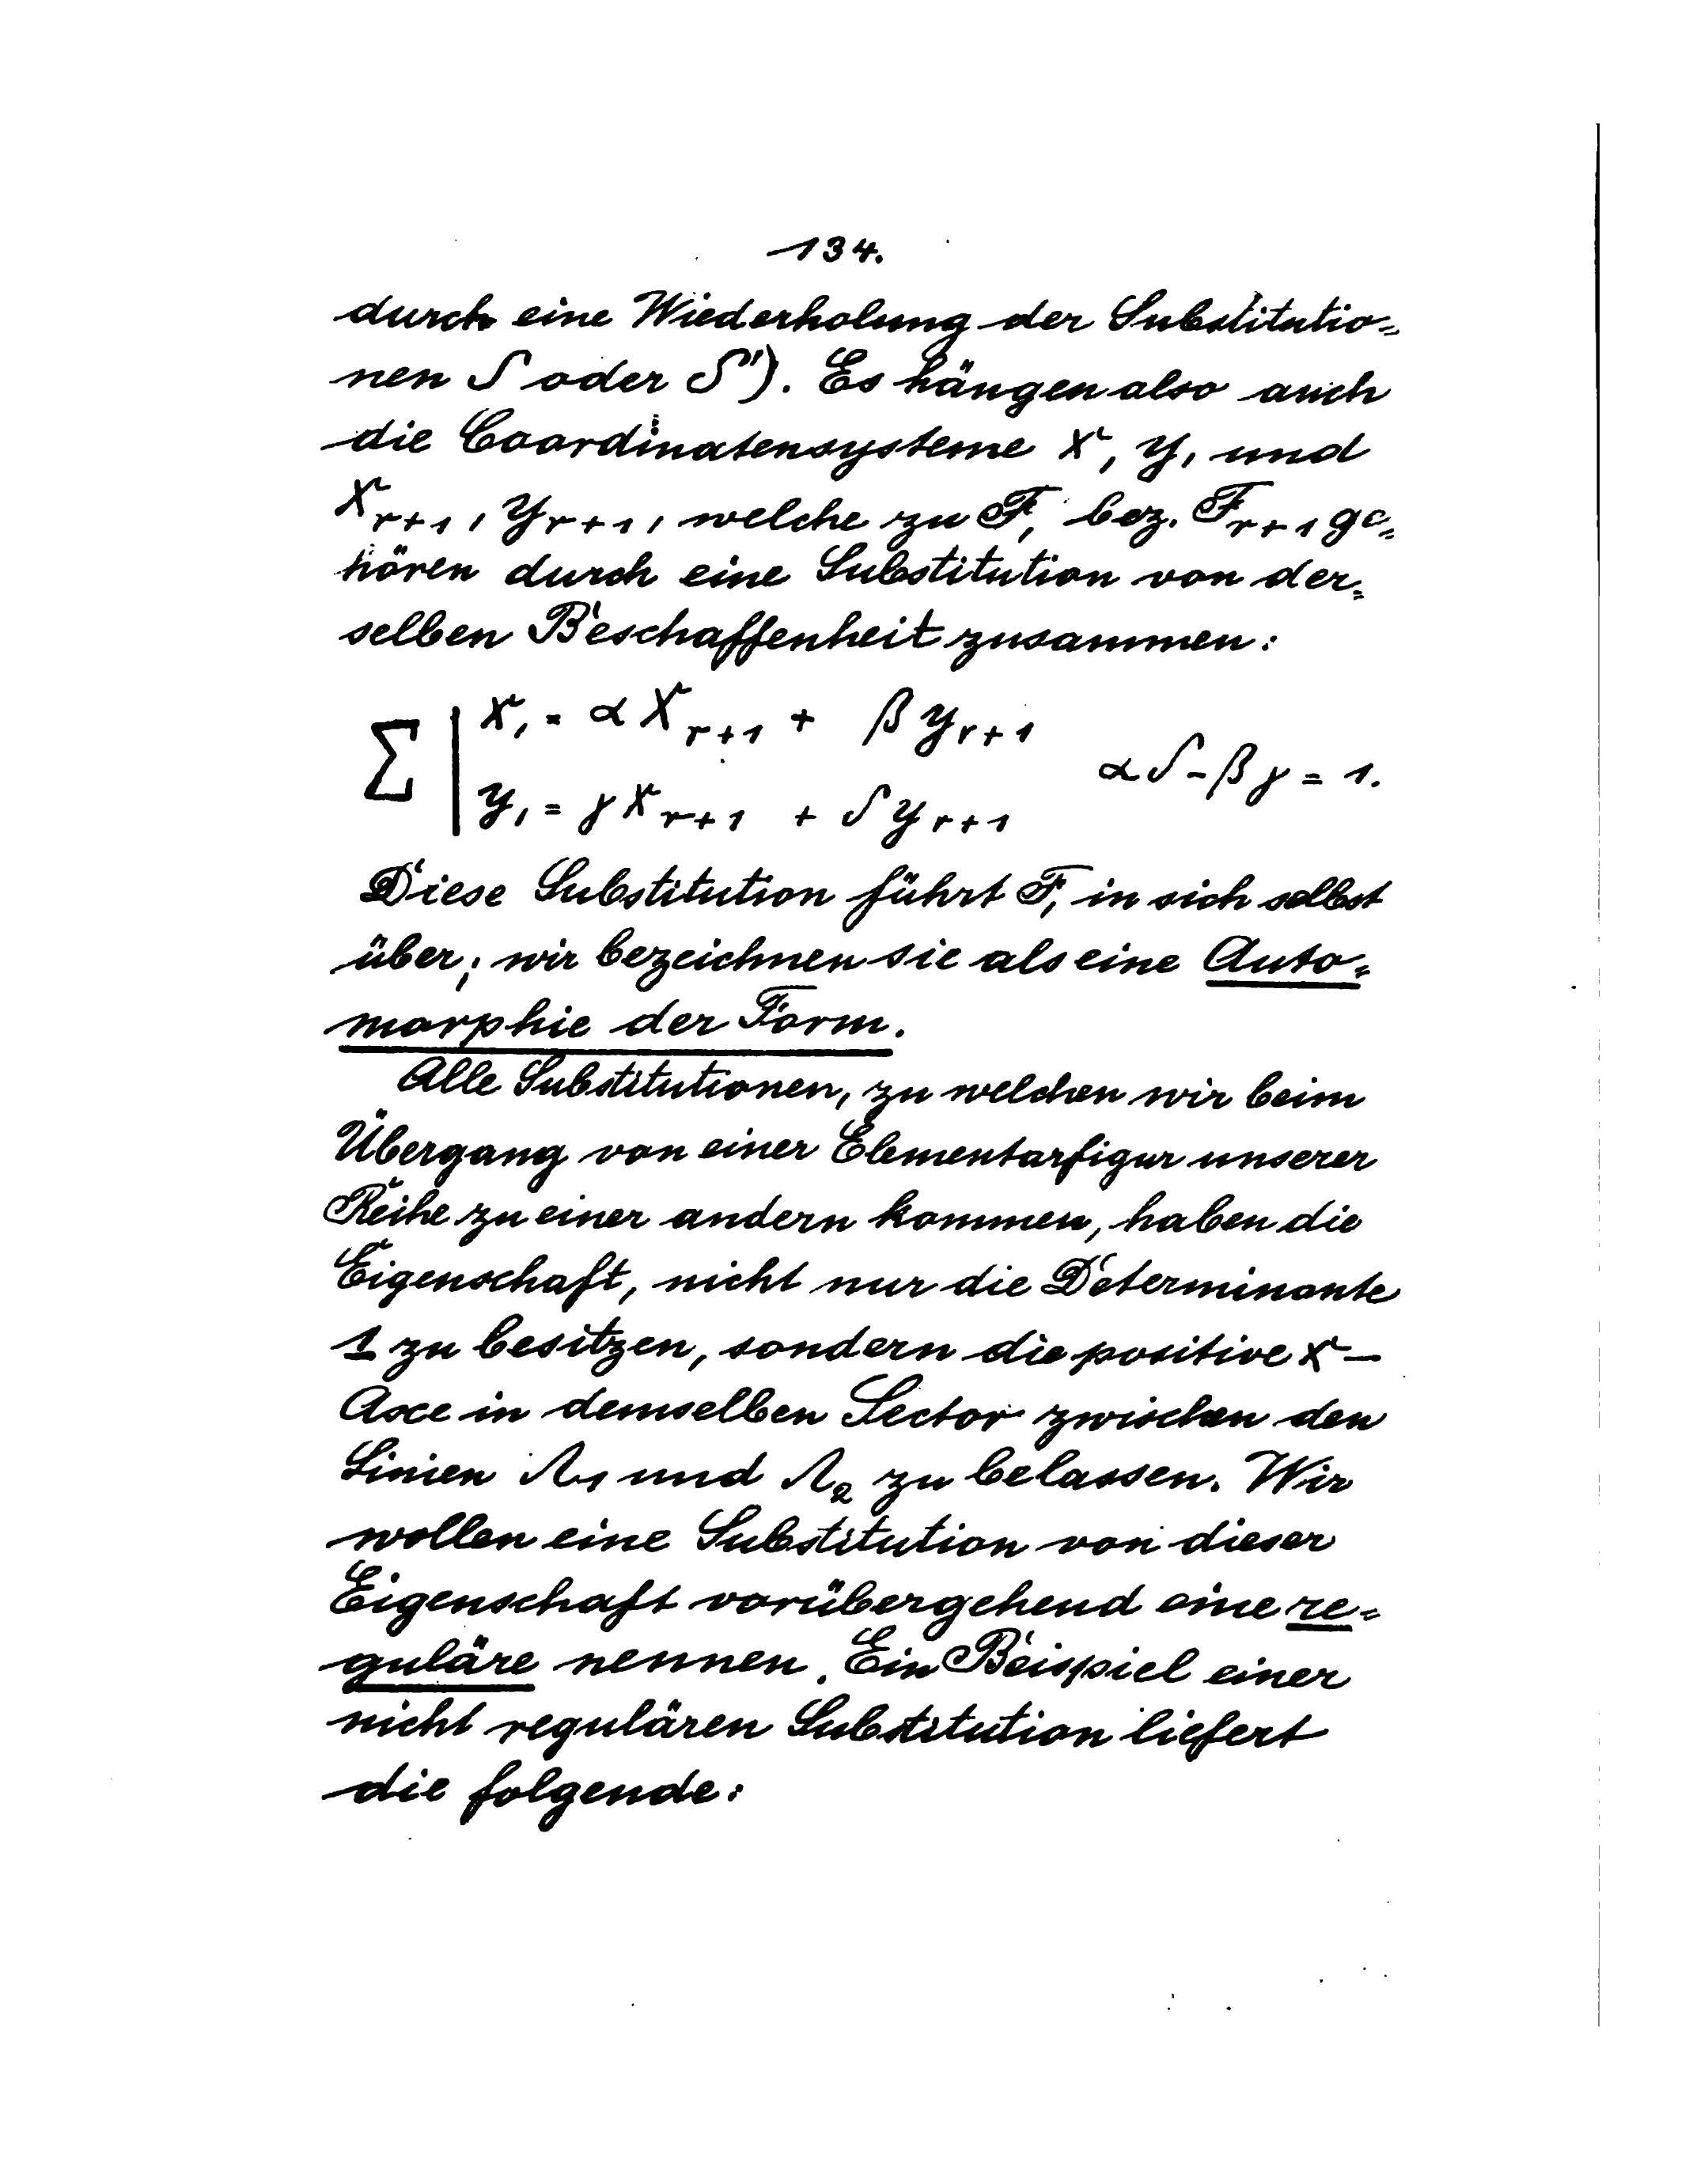 134.
durch eine Wiederholung der Substitutio-
nen S oder S'). Es hängen also auch
die Coordinatensysteme x, y, und
x_{r+1}, y_{r+1}, welche zu F, bez. F_{r+1} ge-
hören durch eine Substitution von der-
selben Beschaffenheit zusammen:
Σ | x_1 = α x_{r+1} + β y_{r+1}
αδ - βγ = 1.
y_1 = γ x_{r+1} + δ y_{r+1}
Diese Substitution führt F_1 in sich selbst
über; wir bezeichnen sie als eine Auto-
morphie der Form.
Alle Substitutionen, zu welchen wir beim
Übergang von einer Elementarfigur unserer
Reihe zu einer andern kommen, haben die
Eigenschaft, nicht nur die Determinante
1 zu besitzen, sondern die positive x-
Axe in demselben Sector zwischen den
Linien Λ_1 und Λ_2 zu belassen. Wir
wollen eine Substitution von dieser
Eigenschaft vorübergehend eine re-
guläre nennen. Ein Beispiel einer
nicht regulären Substitution liefert
die folgende: